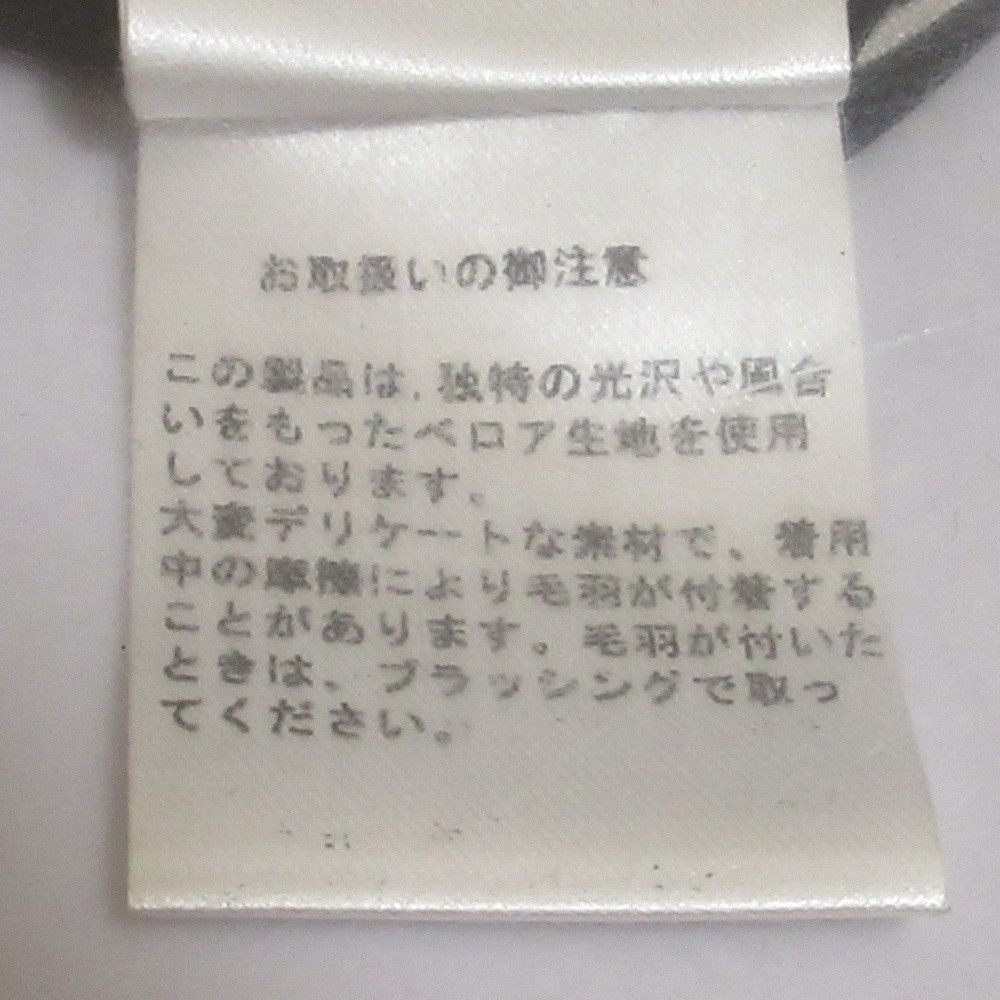 お取扱いの御注意
この製品は、独特の光沢や風合
いをもったベロア生地を使用
しております。
大変デリケートな素材で、着用
中の摩擦により毛羽が付着する
ことがあります。毛羽が付いた
ときは、ブラッシングで取っ
てください。